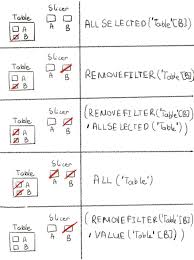 Slicer
Table
A
B
A B
ALLSELECTED('Table'[B])
Slicer
Table
A
B
A B
REMOVEFILTER('Table'[B])
Slicer
Table
A
B
A B
(REMOVEFILTER('Table'[B])
, ALLSELECTED('Table'))
Slicer
Table
A
B
A B
ALL('Table')
Slicer
Table
A
B
A B
(REMOVEFILTER('Table'[B])
, VALUE('Table'[B])